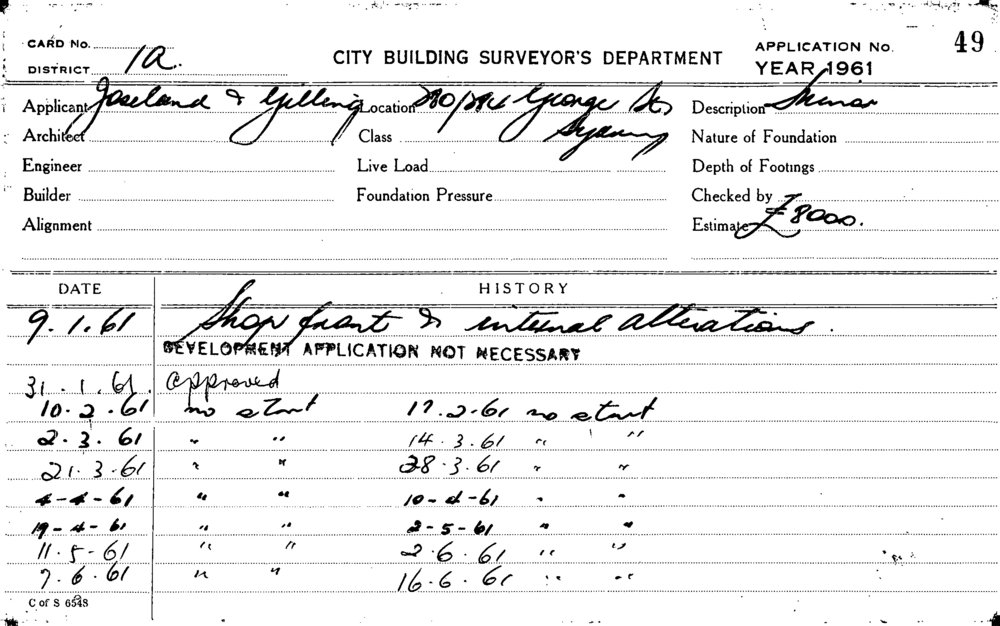 CARD No.
DISTRICT 1A.
CITY BUILDING SURVEYOR'S DEPARTMENT
APPLICATION No. 49
YEAR 1961
Applicant Joseland & Gilling Location 280/284 George St Description Minor
Architect Class Sydney Nature of Foundation
Engineer Live Load Depth of Footings
Builder Foundation Pressure Checked by
Alignment Estimate £8000.
DATE HISTORY
9.1.61 Shop front & internal alterations.
DEVELOPMENT APPLICATION NOT NECESSARY
31.1.61. approved
10.2.61 no start 17.2.61 no start
2.3.61 " " 14.3.61 " "
21.3.61 " " 28.3.61 " "
4-4-61 " " 10-4-61 " "
19-4-61 " " 2-5-61 " "
11.5-61 " " 2.6.61 " "
7.6.61 " " 16.6.61 " "
C of S 6548